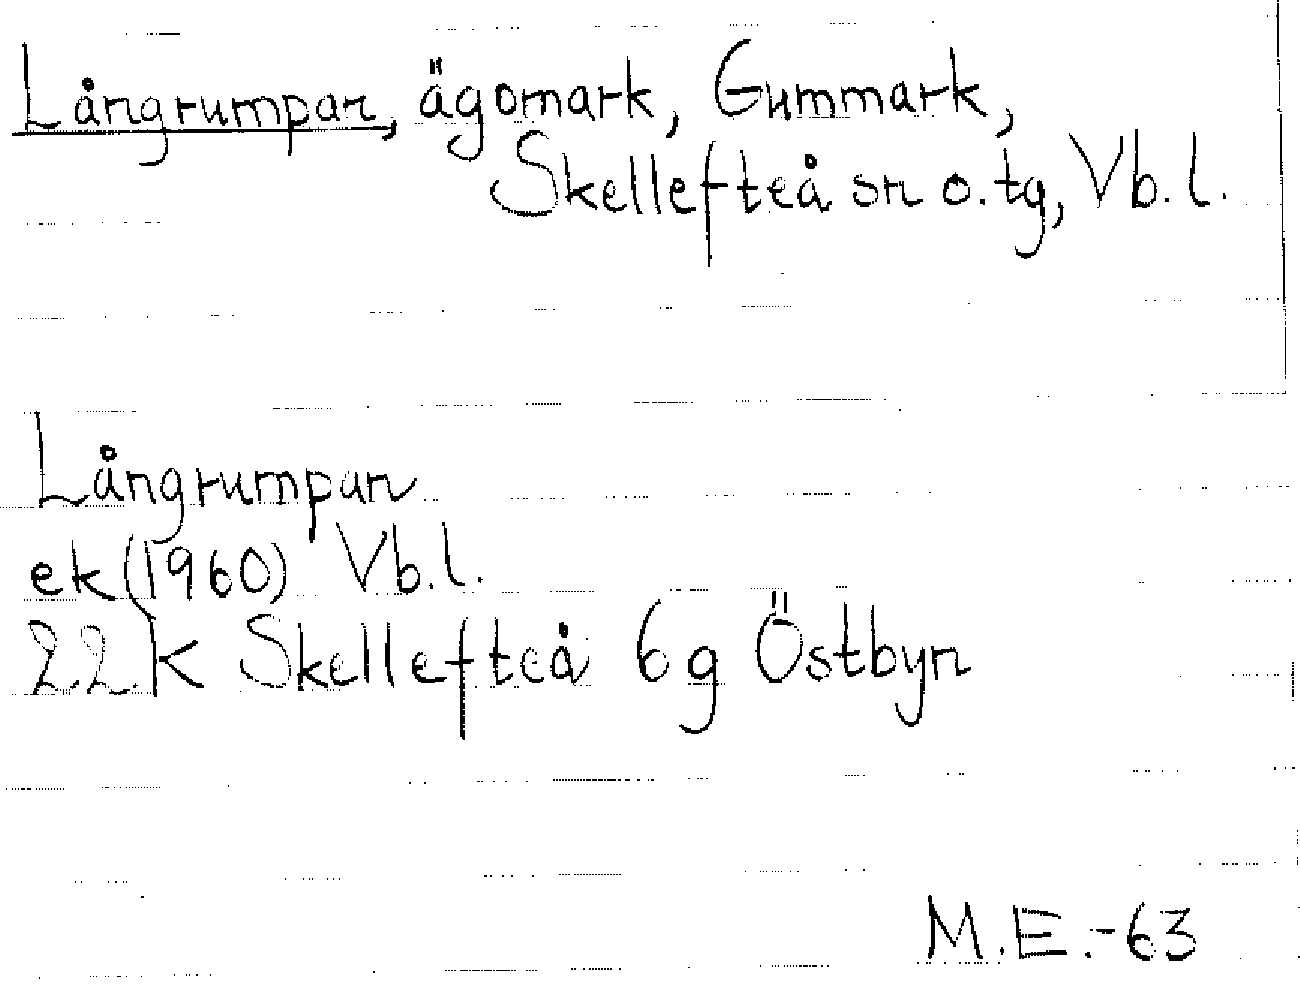 Långrumpan, ägomark, Gummark,
Skellefteå sn o.tg, Vb.l.
Långrumpan
ek (1960) Vb.l.
22K Skellefteå 6g Östbyn
M.E.-63